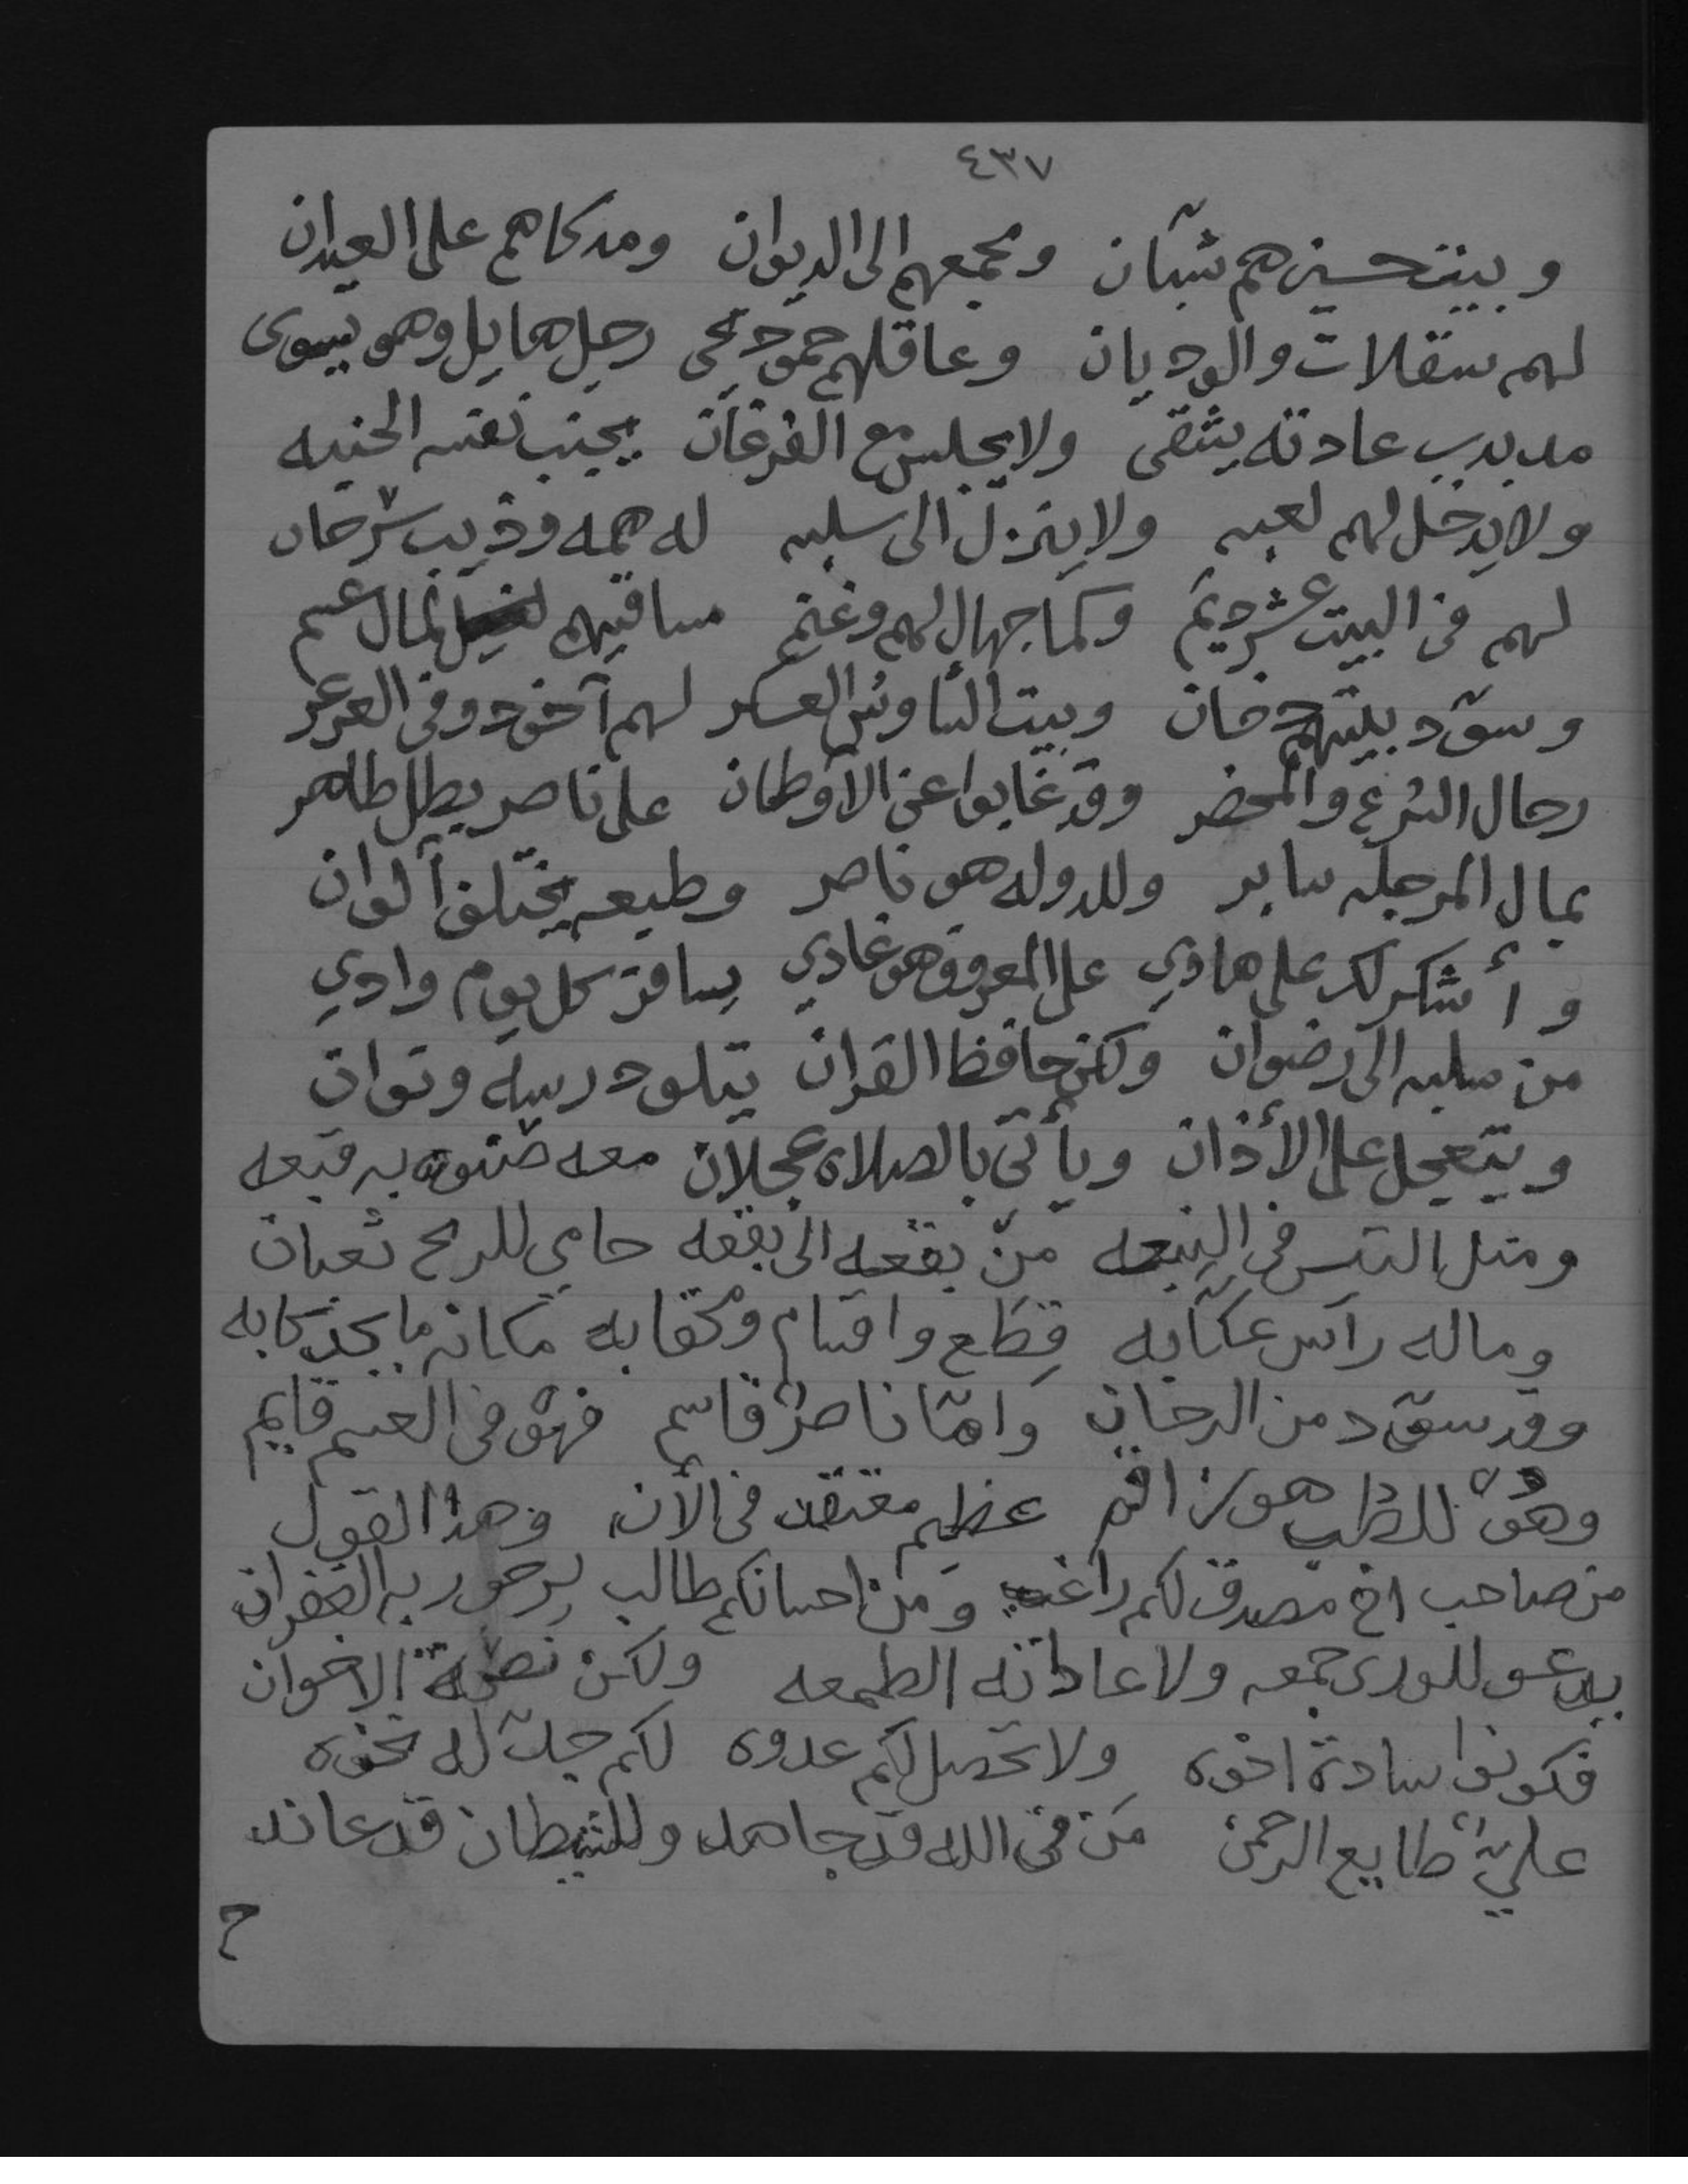 ٤٣٧
وبيت حسين هم شبّان ومجمعهم الى الديوان ومدكاهم على العيدان
لهم ستقلات والوديان وعاقلهم حمود يحي رجل هايل وهو يسوى
مدبدب عادته يشقى ولا يجلس مع الفرغان يجنب نفسه الحنبه
ولا يدخل لهم لعبه ولا ينزل الى سلبه له همه وذيب سرحان
لهم في البيت عشر ديَم وكما جهال لهم وغنم ساقيهم بمال عسم
وسوّد بيتهم دخان وبيت الناوس العسكر لهم آخود وفي العرعر
رجال الشرع والمحضر وقد غابوا عن الاوطان على ناصر بطل طاهر
بمال المرجله سابر وللدوله هو ناصر وطبعه يختلف ألوان
وأشكر لك على هادي على المعروف هو غادي يسافر كل يوم وادي
من سلبه الى رضوان وكن حافظ القران يتلو درسه وتوان
ويتعجل على الأذان ويأتي بالصلاه عجلان معه به قبعه
ومثل التيس في النبعه من بقعه الى بقعه حامي للربح تعبان
وماله رأس عكّابه قِطَع واقسام ومحقابه مكانه ما يجد كابه
وقد سوّد من الدخان وامّا ناصر قاسم فهو في العسم قايم
وهو للطلب هو عظيم في الأن وهذا القول
من صاحب اخ مصدق لكم راغب ومن احسانكم طالب يرجو ربه الغفران
يدعو للورى جمعه ولا عاداته الطمعه ولكن الاخوان
فكونوا سادة اخوه ولا تحصل لكم عدوه لكم جدّ له نخوه
عليّ طايع الرحمن من في الله قد جاهد وللشيطان قد عاند
ح